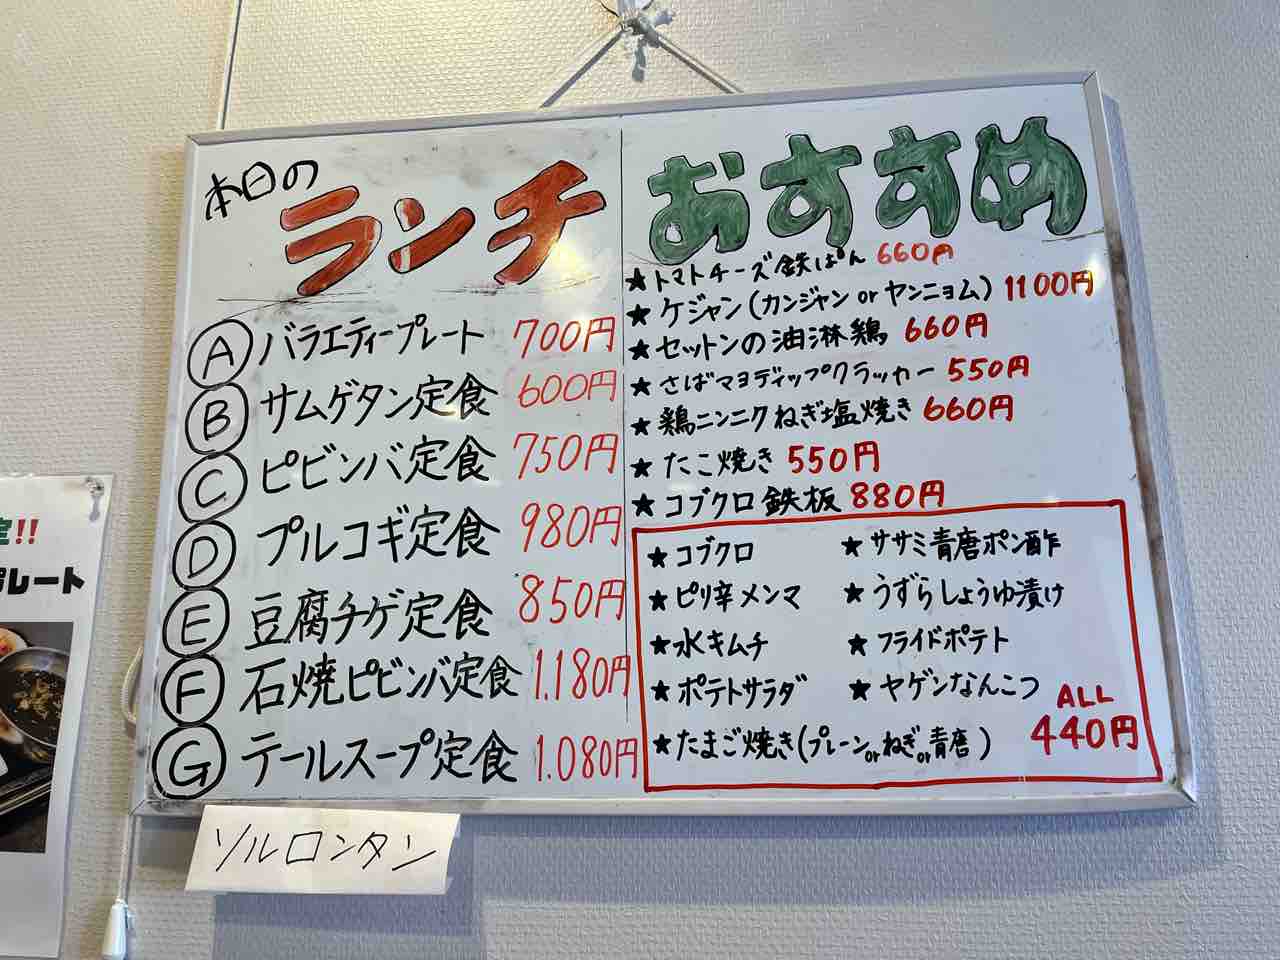 本日の
ランチ
Ⓐ バラエティープレート 700円
Ⓑ サムゲタン定食 600円
Ⓒ ピビンバ定食 750円
Ⓓ プルコギ定食 980円
Ⓔ 豆腐チゲ定食 850円
Ⓕ 石焼ピビンバ定食 1.180円
Ⓖ テールスープ定食 1.080円
ソルロンタン
おすすめ
★トマトチーズ鉄ぱん 660円
★ケジャン(カンジャン or ヤンニョム) 1100円
★セットンの油淋鶏 660円
★さばマヨディップクラッカー 550円
★鶏ニンニクねぎ塩焼き 660円
★たこ焼き 550円
★コブクロ鉄板 880円
★コブクロ
★ピリ辛メンマ
★水キムチ
★ポテトサラダ
★たまご焼き(プレーンorねぎor青唐)
★ササミ青唐ポン酢
★うずらしょうゆ漬け
★フライドポテト
★ヤゲンなんこつ
ALL
440円
定!!
プレート